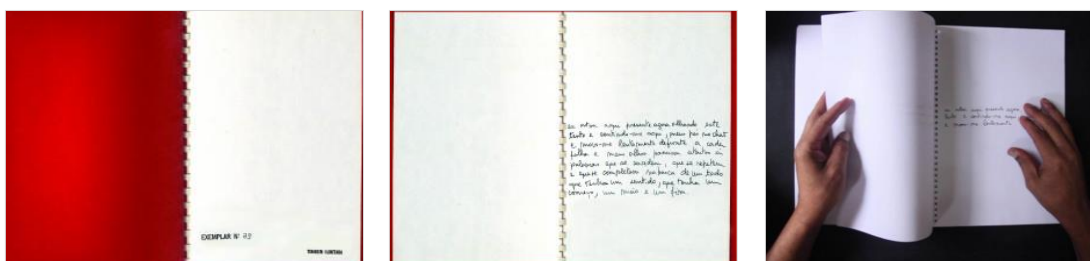 EXEMPLAR Nº
eu estou aqui presente agora olhando este
texto e sentindo-me aqui, preso por no chat
e movo-me lentamente defronte a cada
folha e meus olhos parecem atentos às
palavras que se sucedem, que se repetem
e que se completam na busca de um todo
que tenha um sentido, que tenha um
começo, um meio e um fim.
eu estou aqui presente agora
texto e sentindo-me aqui
e movo-me lentamente